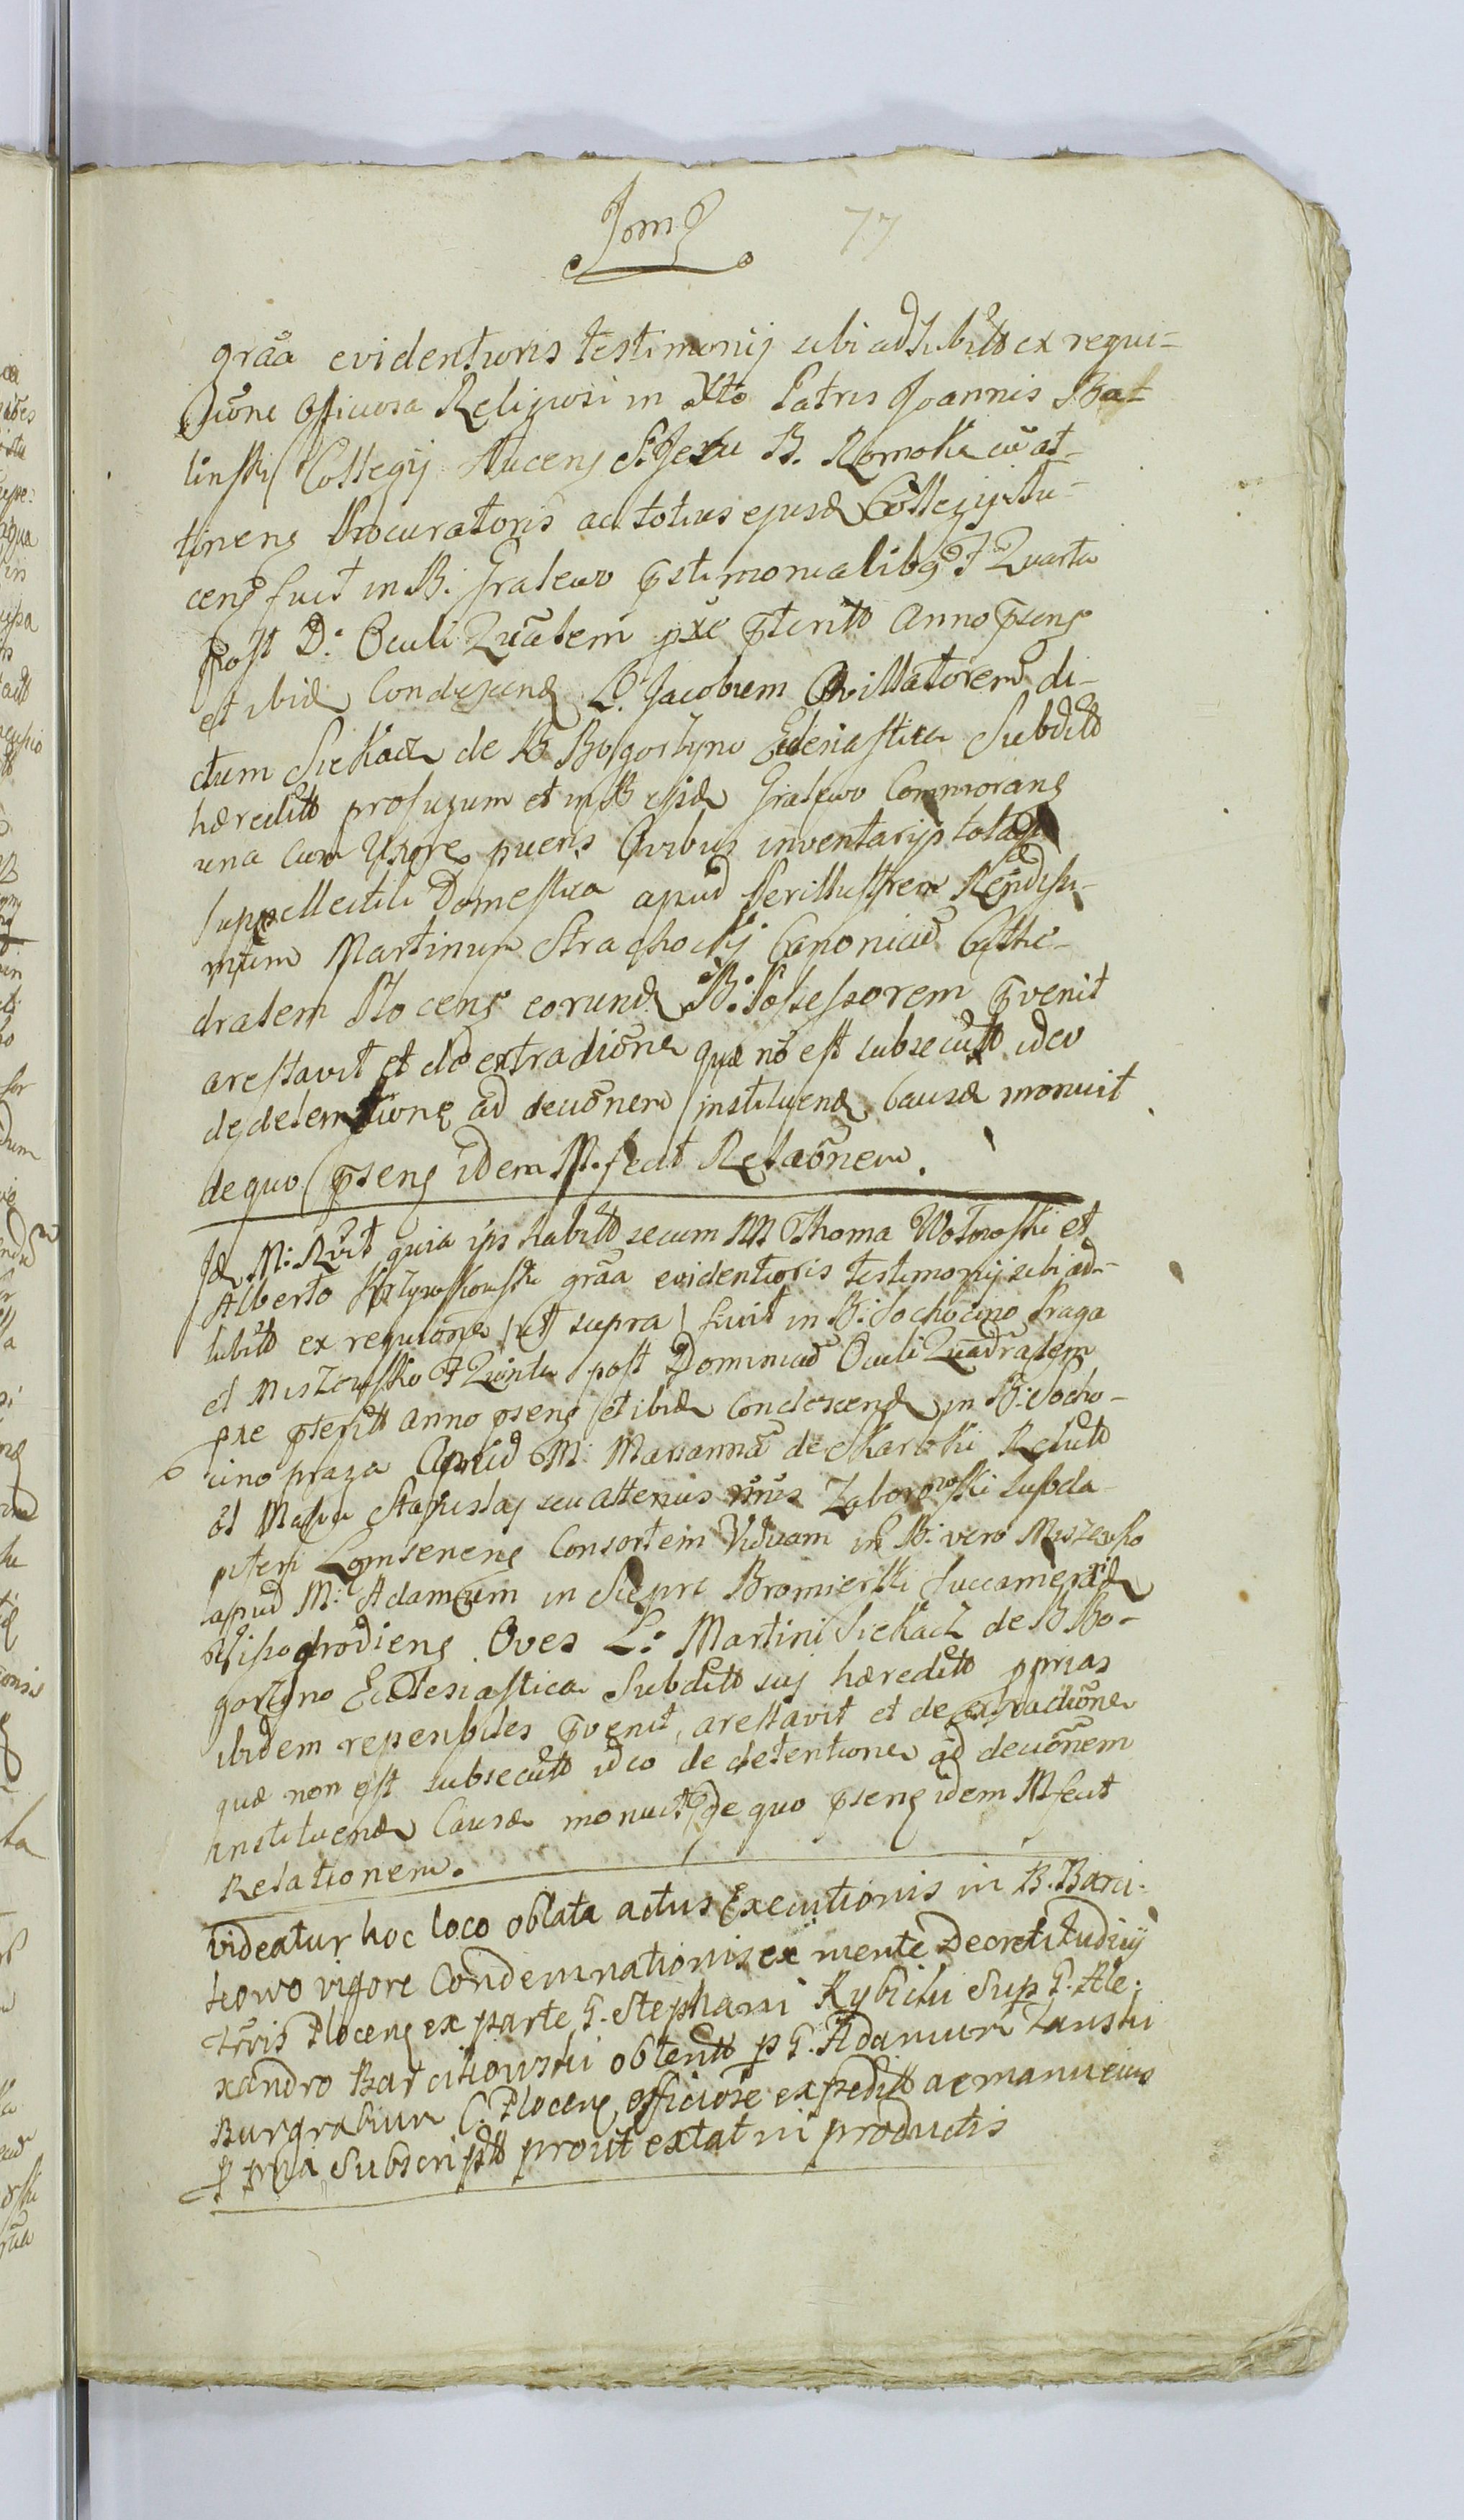 77
grãa evidentioris testimonij sibi adhibitt ex requi-
õne Officiosa Religiosi in Xto Patris Joannis Bat-
linski Collegij Societatis Jesu B. Romoki
tinens Procuratoris ac totius ejusd Collegij
cens fuit in B. Gralewo F Quarta
post D. Oculi Quãlem pxe pterito Anno pñens
et ibid Condescend L. Jacobum Ovillatorem di-
ctum Siekacz de B Bogorzyno Eclesiastica Subditt
hæreditt profugum et in B ejsd Gralewo Commorans
una cum Uxore pueris Ovibus inventarijs tota
suppellectili Domestica apud Perillustrem Rendissi-
mum Martinum Strachocki Canonicũ Cathe-
dralem Plocens eorund B. Possessorem pvenit
arestavit et de extradiõne quæ nõ est subsecutt ideo
de detentione ad deciõnem instituend Causæ monuit
de quo pñens idem M. fecit Relaõnem.
Id M. Rvit quia ips habitt secum NN Thoma Wotnoski et
Alberto grãa evidentioris testimonij sibi ad-
hibitt ex requiõne ut supra fuit in B. Sochocino Praga
et Miszewsko F Quinta post Dominicã Oculi Quadralem
pxe pteritt anno pñens et ibid Condescend in B. Socho-
cino praga Apud M. Mariannã de Skarbki Relictt
ol Mgfci Stanislaj seu alterius nois Zaborowski Subda-
piferi Lomzenens Consortem Viduam in B. vero Miszewsko
apud M. Adamum in Siepre Bromierski Succamerarid
Wissogrodiens Oves L. Martini Siekacz de B Bo-
gorzyno Ecclesiastica Subditt suj hæreditt pprias
ibidem reperibiles pvenit, arestavit et de extradiõne
quæ non est subsecutt ideo de detentione ad deciõnem
instituend Causæ monuit de quo pñens idem M fecit
Relationem.
videatur hoc loco oblata actus Executionis in B. Barci-
kowo vigore Condemnationis ex mente Decreti Judicij
Plocens ex parte G. Stephani Rybicki Sup G. Ale-
xandro Barcikowski obtentt p G. Adamum Zauski
Burgrabium C. Plocens officiose expeditt ac manu eius
ppria Subscriptt prout extat in productis